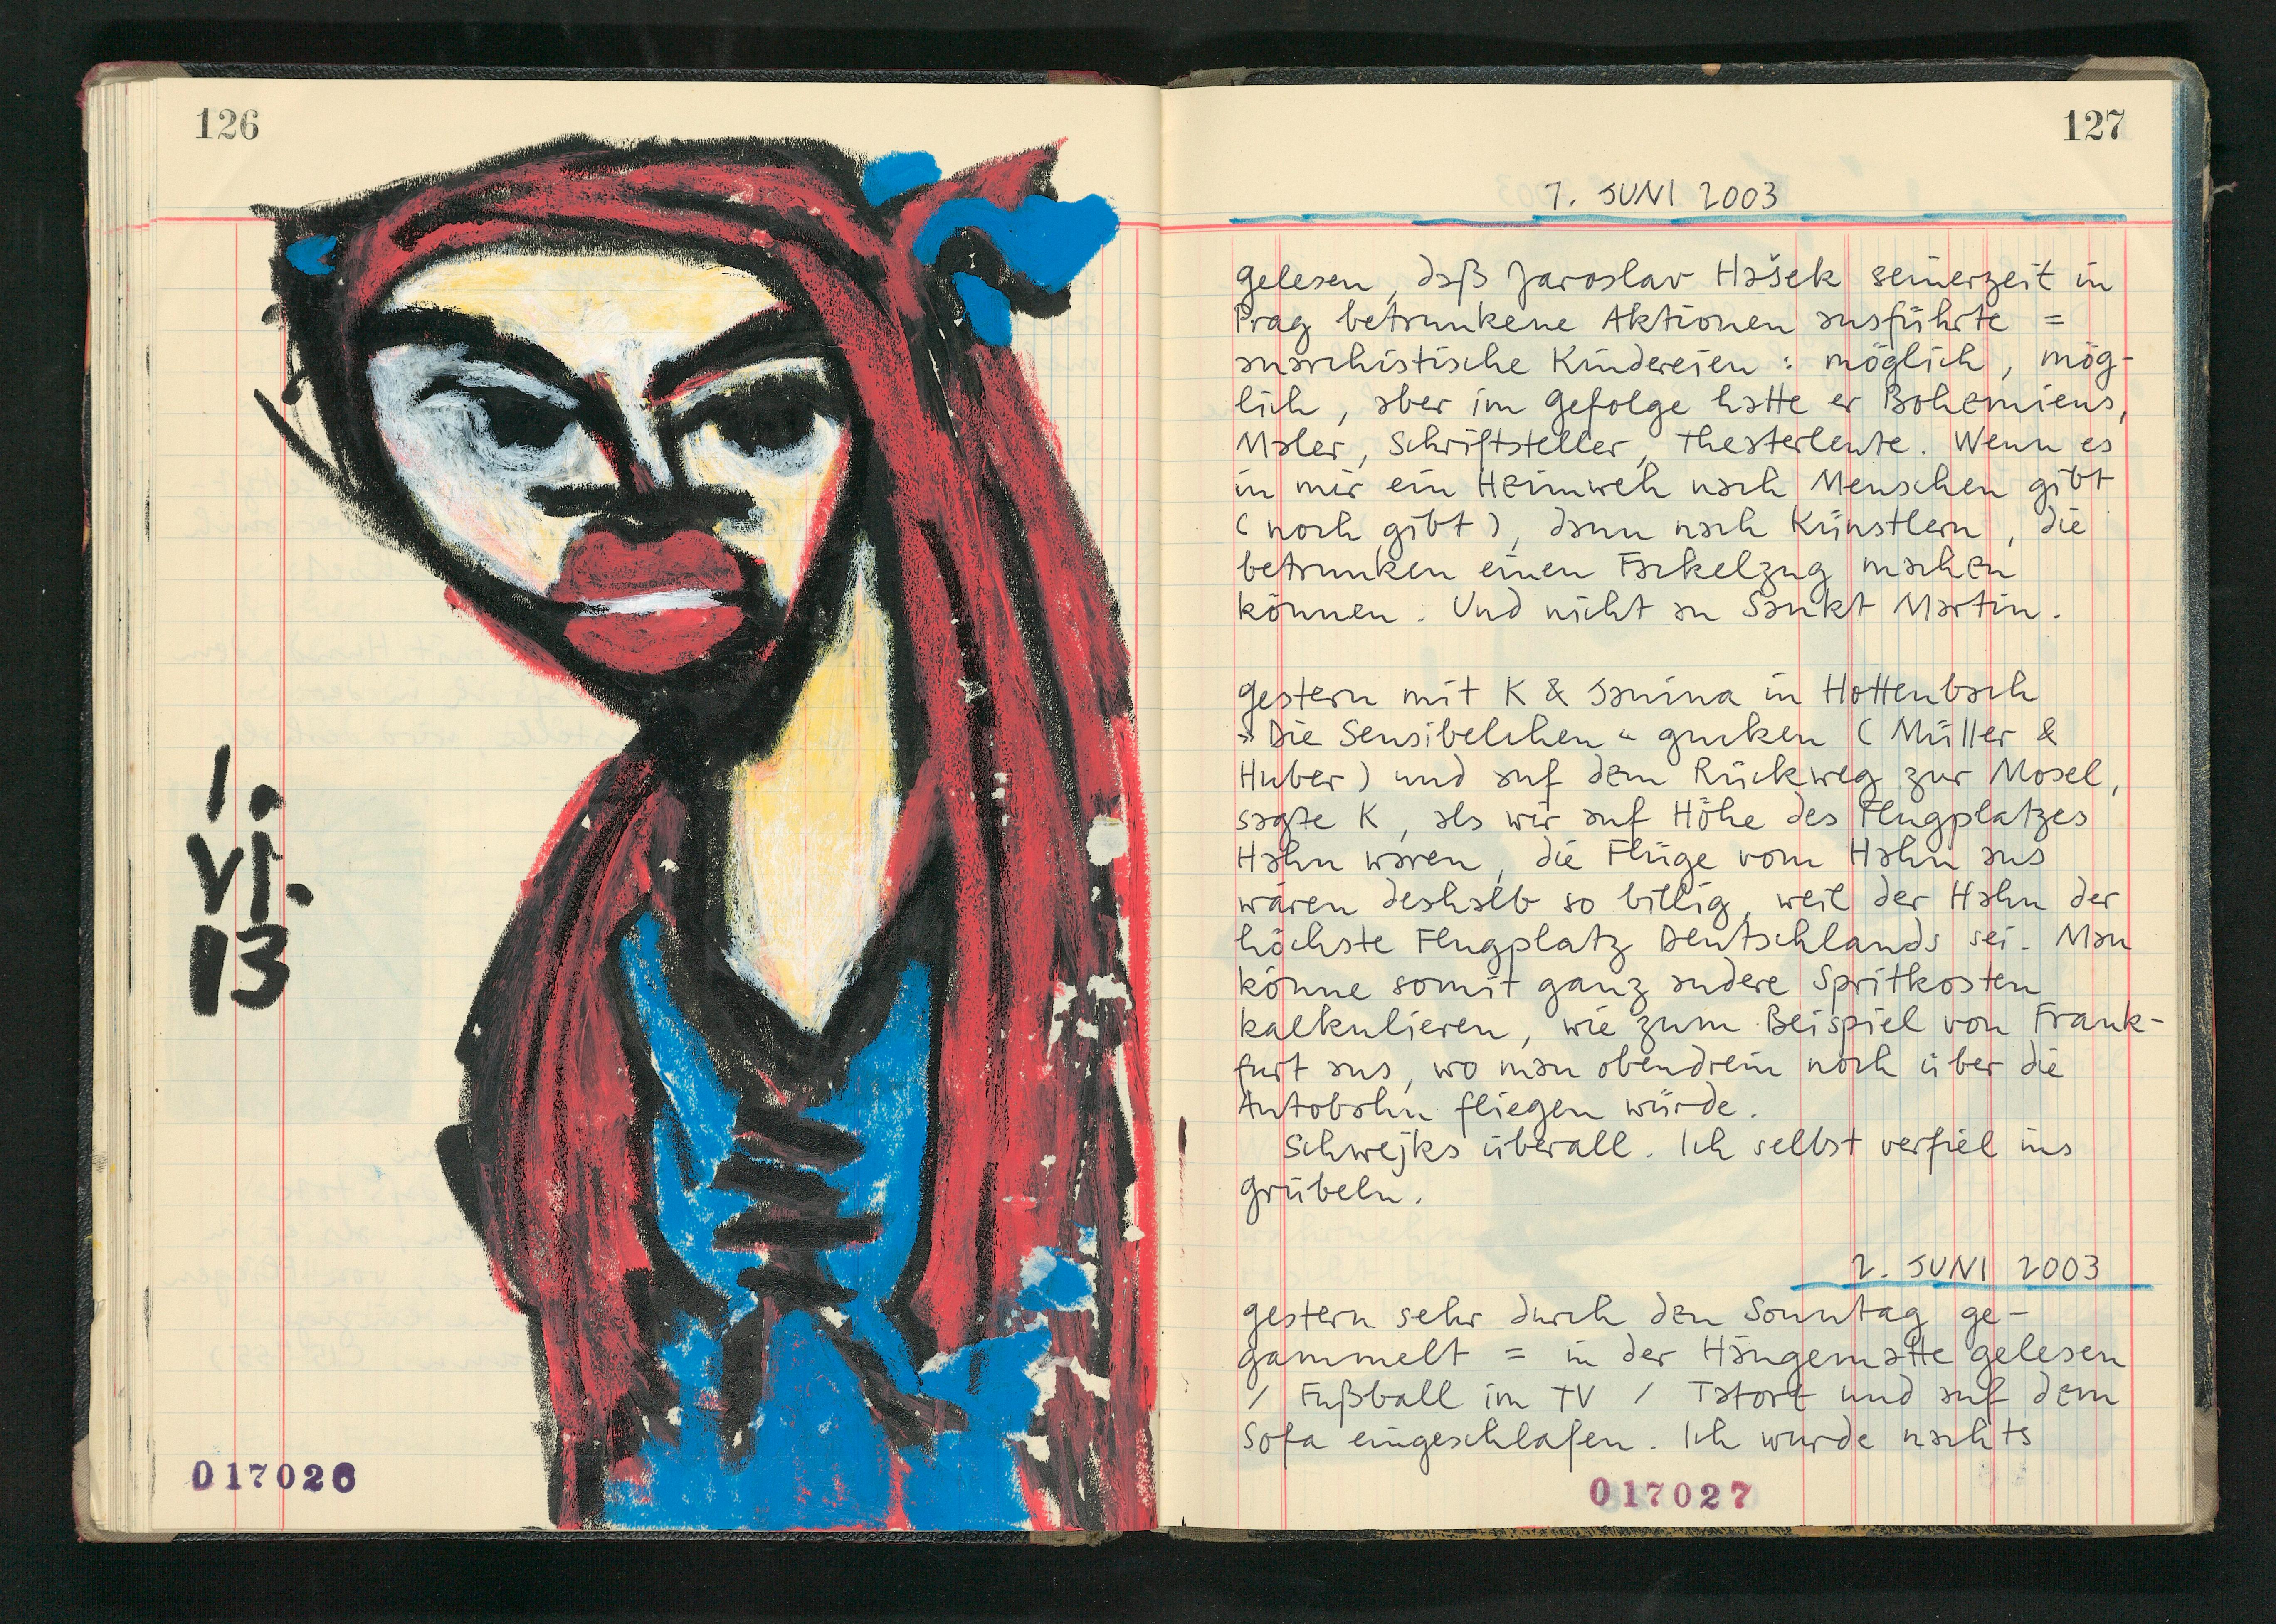 126
1.
VI.
13
017026
127
1. JUNI 2003
gelesen, daß Jaroslav Hašek seinerzeit in
Prag betrunkene Aktionen ausführte =
anarchistische Kindereien : möglich, mög-
lich, aber im Gefolge hatte er Bohemiens,
Maler, Schriftsteller, Theaterleute. Wenn es
in mir ein Heimweh nach Menschen gibt
(noch gibt), dann nach Künstlern, die
betrunken einen Fackelzug machen
können. Und nicht an Sankt Martin.
gestern mit K & Janina in Hottenbach
"Die Sensibelchen" gucken (Müller &
Huber) und auf dem Rückweg zur Mosel,
sagte K, als wir auf Höhe des Flugplatzes
Hahn waren, die Flüge vom Hahn aus
wären deshalb so billig, weil der Hahn der
höchste Flugplatz Deutschlands sei. Man
könne somit ganz andere Spritkosten
kalkulieren, wie zum Beispiel von Frank-
furt aus, wo man obendrein noch über die
Autobahn fliegen würde.
Schwejks überall. Ich selbst verfiel ins
grübeln.
2. JUNI 2003
gestern sehr durch den Sonntag ge-
gammelt = in der Hängematte gelesen
/ Fußball im TV / Tatort und auf dem
Sofa eingeschlafen. Ich wurde nachts
017027